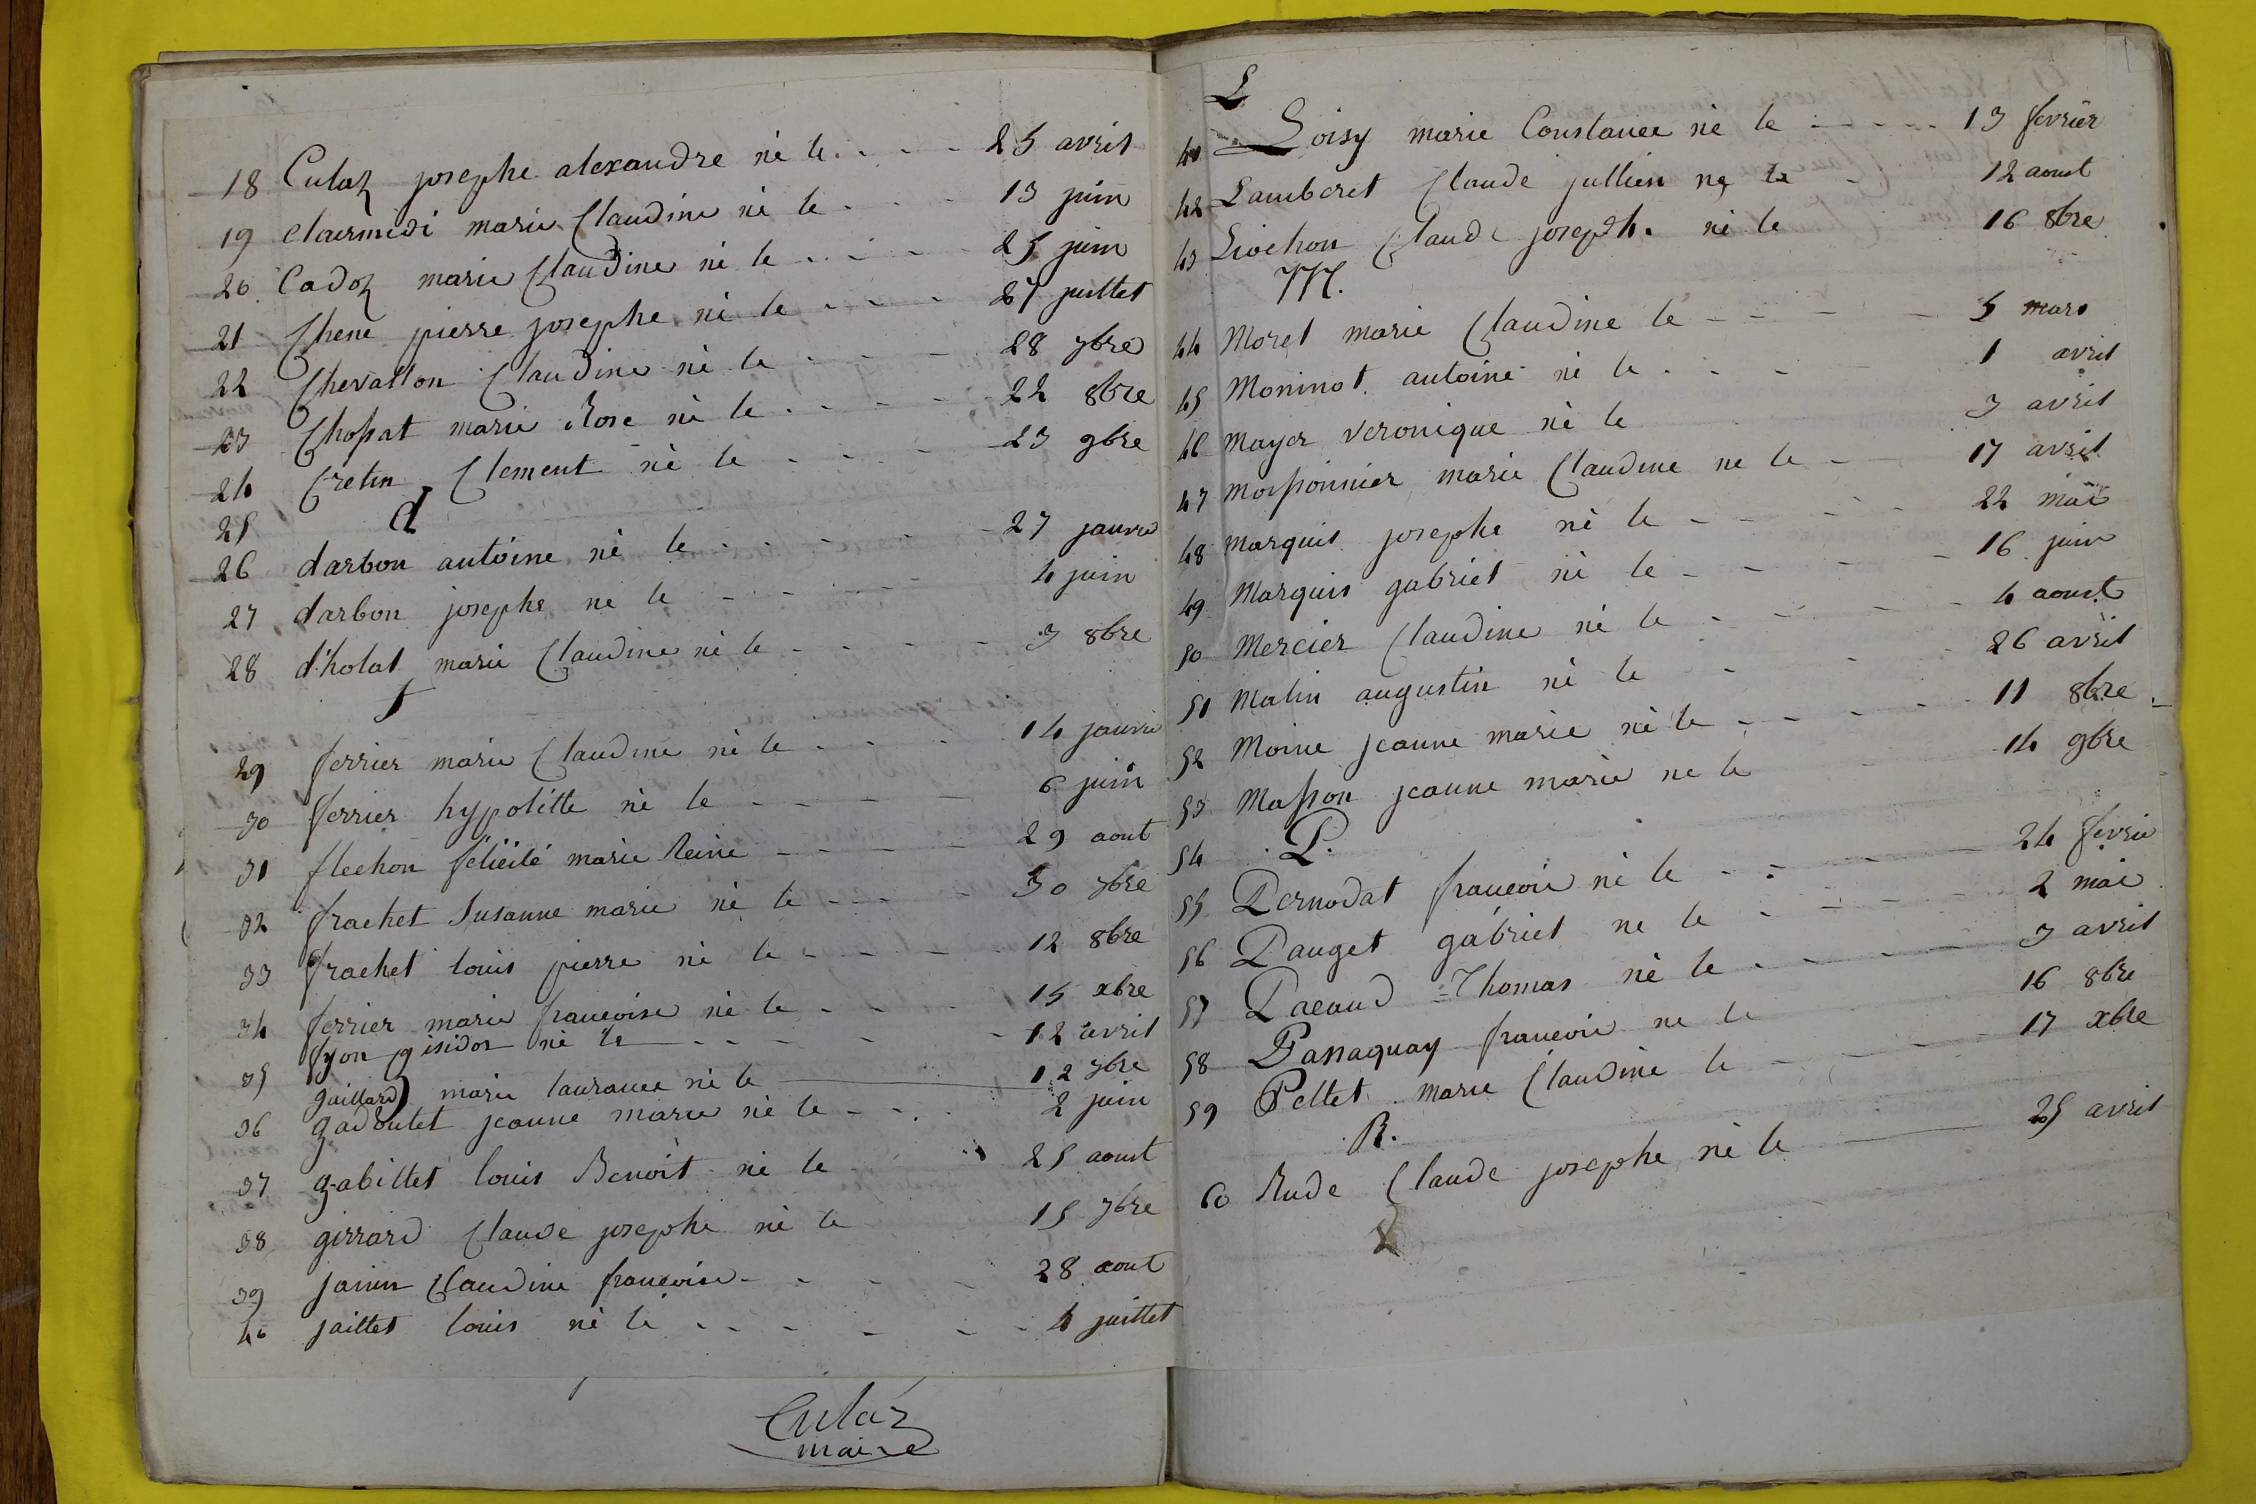 18 Culaz josephe alexandre né le . . . . 25 avril
19 Clairmidi marie Claudine né le . . . . 13 juin
20 Cadoz marie Claudine né le . . . . 25 juin
21 Chene pierre josephe né le . . . . 27 juillet
22 Chevallon Claudine né le . . . . 28 7bre
23 Chossat marie Rose né le . . . . 22 8bre
24 Cretin Clement né le . . . . 23 9bre
25 d
26 darbon antoine né le . . . . 27 janvie
27 darbon josephe ne le . . . . 4 juin
28 d'holat marie Claudine né le . . . . 3 8bre
f
29 ferrier marie Claudine né le . . . . 14 janvie
30 ferrier hypolitte né le . . . . 6 juin
31 flechon félicité marie Reine . . . . 29 aout
32 frachet Susanne marie né le . . . . 30 7bre
33 frachet louis pierre né le . . . . 12 8bre
34 ferrier marie francoise né le . . . . 15 xbre
35 fyon isidor né le . . . . 12 avril
gaillard marie laurance né le 12 7bre
36 gadoulet jeanne marie né le . . . 2 juin
37 gabillet louis Benoit né le 25 aoust
38 girrard Claude josephe né le 15 7bre
39 janin Claudine francoise . . . . 28 aout
40 jaillet louis né le . . . . 4 juillet
Culaz
maire
L
41 Loisy marie Constance né le . . . . 13 fevrier
42 Lamberet Claude jullien né le . 12 aoust
43 Liochon Claude joseph. né le 16 8bre
M.
44 Moret marie Claudine le . . . . 5 mars
45 Moninot antoine né le . . . . 1 avril
46 Mayer veronique né le 3 avril
47 Moissonnier marie Claudine ne le . 17 avril
48 Marquis josephe né le . . . . 22 mai
49 Marquis gabriel né le . . . . 16 juin
50 Mercier Claudine né le . . . . 4 aoust
51 Malin augustin né le . . . 26 avril
52 Moine jeanne marie né le . . . . 11 8bre
53 Masson jeanne marie ne le 14 9bre
54 P.
55 Pernodat francois né le . . . . 24 fevrie
56 Pauget gabriel ne le . . . . 2 mai
57 Pacaud Thomas né le . . . . 3 avril
58 Panaquay francois ne le 16 8bre
59 Pellet marie Claudine le . . . . 17 xbre
R.
60 Rude Claude josephe né le 25 avril